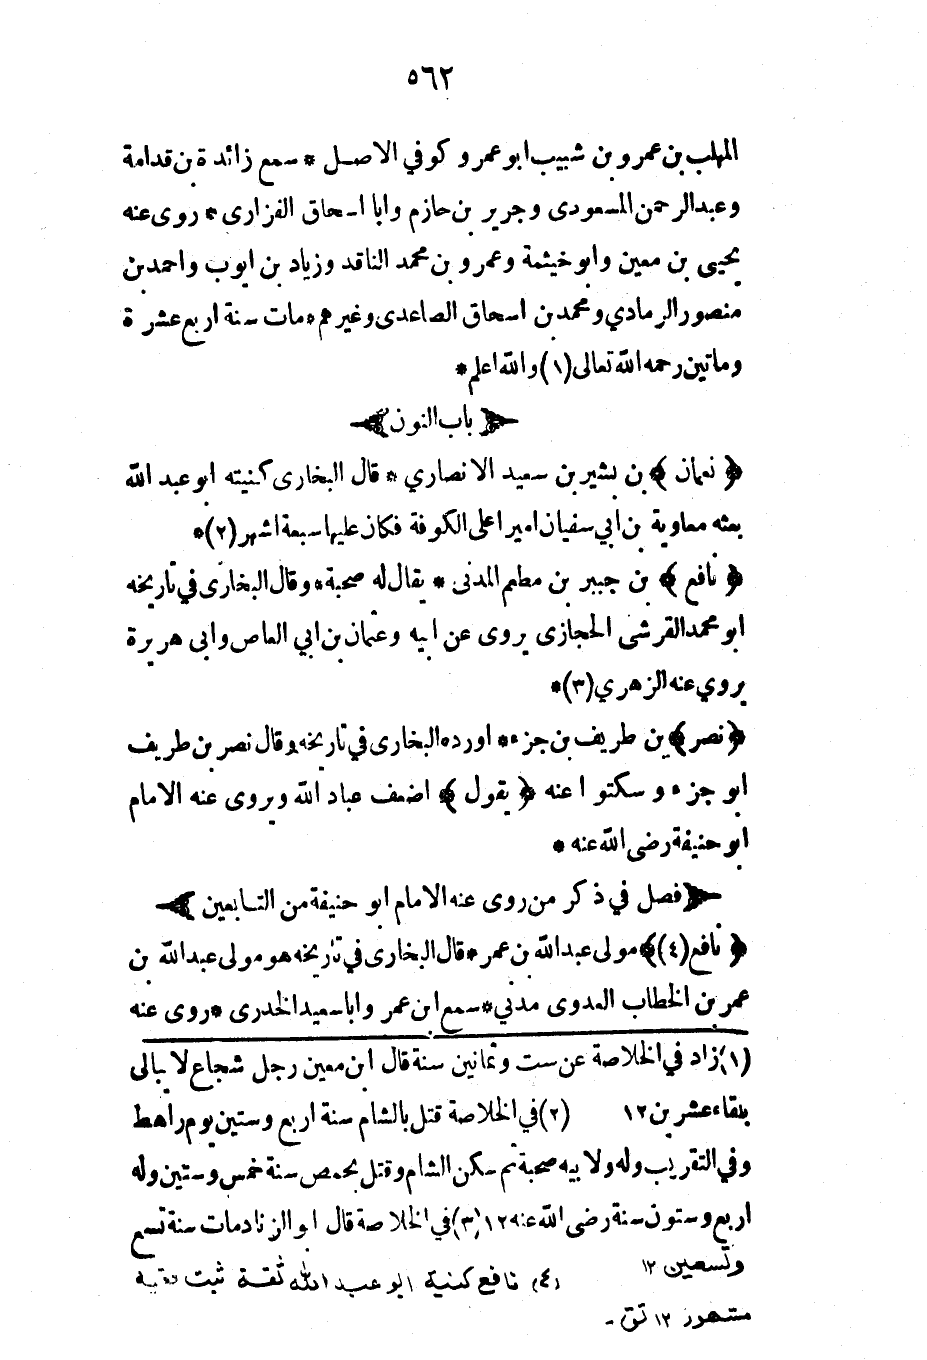 ٥٦٢
المهلب بن عمرو بن شبيب ابو عمرو كوفي الاصل * سمع زائدة بن قدامة
وعبدالرحمن المسعودى وجرير بن حازم وابا اسحاق الفزارى * روى عنه
يحيى بن معين وابو خيثمة وعمرو بن محمد الناقد وزياد بن ايوب واحمد بن
منصور الرمادي ومحمد بن اسحاق الصاعدى وغيرهم * مات سنة اربع عشرة
وماتين رحمه الله تعالى (١) والله اعلم *
باب النون
﴿ نعمان ﴾ بن بشير بن سعيد الانصاري * قال البخارى كنيته ابو عبد الله
بعثه معاوية بن ابي سفيان اميرا على الكوفة فكان عليها سبعة اشهر (٢) *
﴿ نافع ﴾ بن جبير بن مطعم المدنى * يقال له صحبة * وقال البخارى في تاريخه
ابو محمد القرشى الحجازى يروى عن ابيه وعثمان بن ابي العاص وابى هريرة
يروي عنه الزهري (٣) *
﴿ نصر ﴾ بن طريف بن جزء * اورده البخارى في تاريخه وقال نصر بن طريف
ابو جزء وسكتوا عنه ﴿ يقول ﴾ اضعف عباد الله ويروى عنه الامام
ابو حنيفة رضى الله عنه *
فصل في ذكر من روى عنه الامام ابو حنيفة من التابعين
﴿ نافع (٤) ﴾ مولى عبدالله بن عمر * قال البخارى في تاريخه هو مولى عبدالله بن
عمر بن الخطاب العدوى مدني * سمع ابن عمر وابا سعيد الخدرى * روى عنه
(١) زاد في الخلاصة عن ست وثمانين سنة قال ابن معين رجل شجاع لا يبالى
بلقاء عشرين ١٢ (٢) في الخلاصة قتل بالشام سنة اربع وستين يوم راهط
وفي التقريب وله ولابيه صحبة ثم سكن الشام وقتل بحمص سنة خمس وستين وله
اربع وستون سنة رضى الله عنه ١٢ (٣) في الخلاصة قال ابو الزناد مات سنة تسع
وتسعين ١٢ (٤) نافع كنية ابو عبد الله ثقة ثبت فقيه
مشهور ١٢ تق -